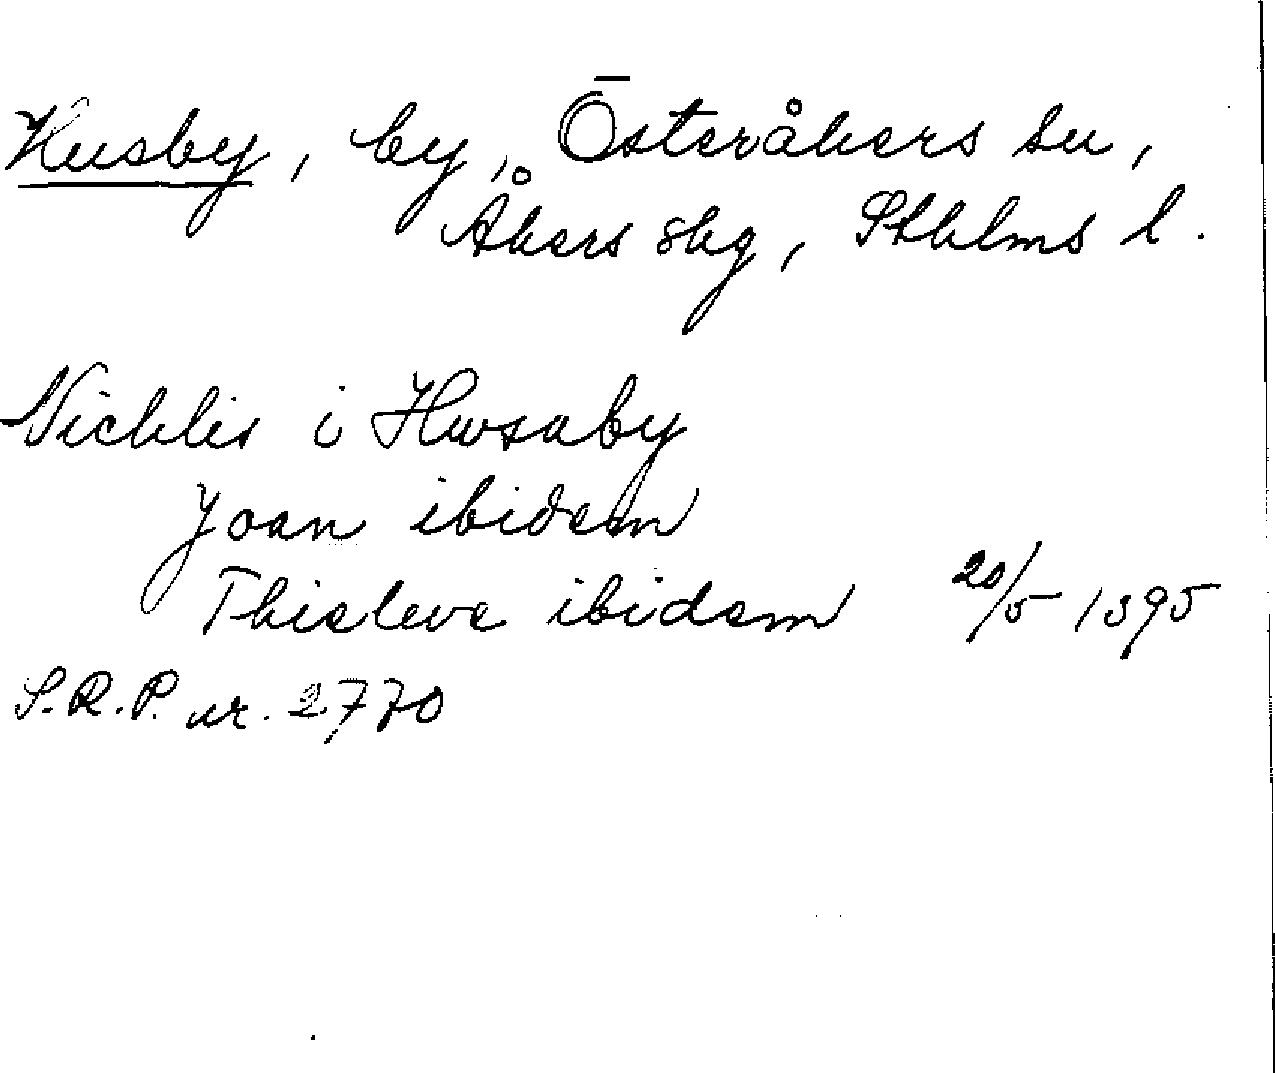 Husby, by, Österåkers sn,
Åkers skg, Sthlms l.
Nicklis i Hwsaby
Joan ibidem
Thisleve ibidem 20/5 1395
S.R.P. nr. 2770